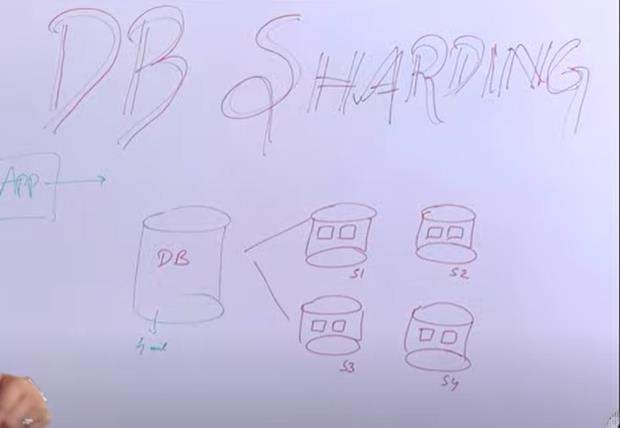 DB SHARDING
APP
DB
S1
S2
S3
S4